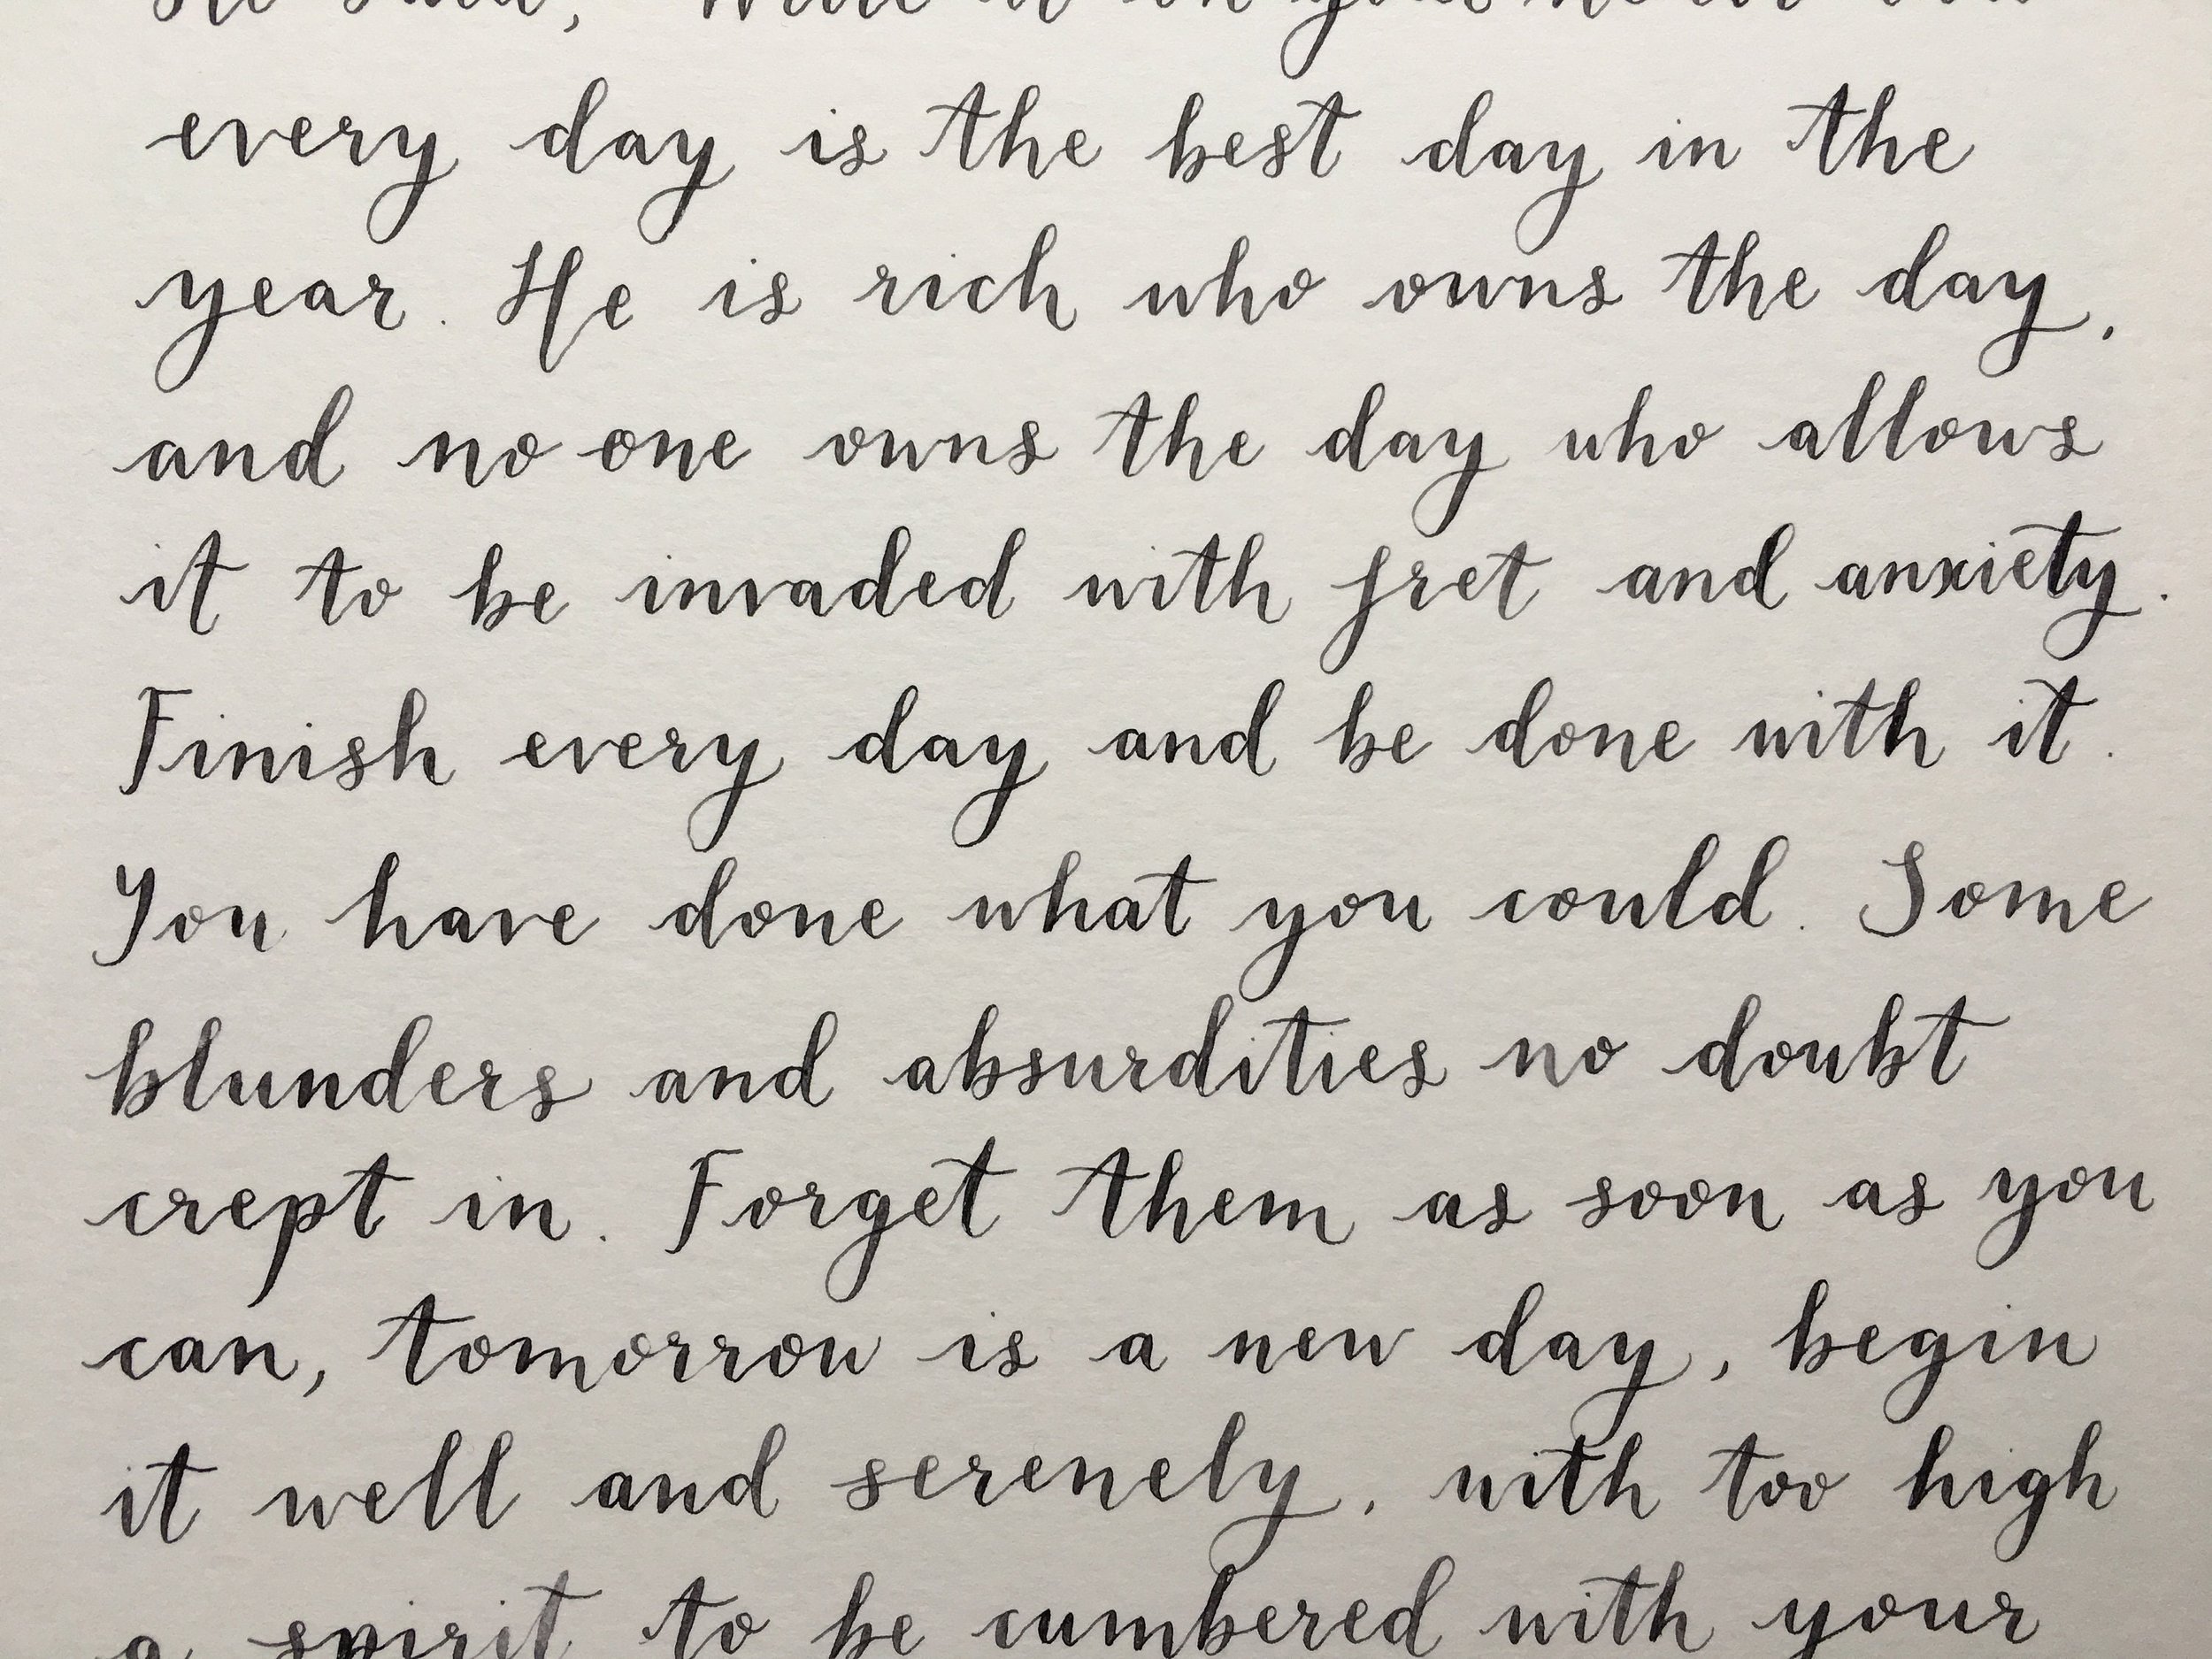 He said, "Write it on your heart that
every day is the best day in the
year. He is rich who owns the day,
and no one owns the day who allows
it to be invaded with fret and anxiety.
Finish every day and be done with it.
You have done what you could. Some
blunders and absurdities no doubt
crept in. Forget them as soon as you
can, tomorrow is a new day, begin
it well and serenely, with too high
a spirit to be cumbered with your